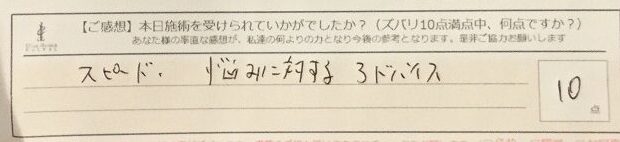 【ご感想】本日施術を受けられていかがでしたか？（ズバリ10点満点中、何点ですか？）
あなた様の率直な感想が、私達の何よりの力となり今後の参考となります。是非ご協力お願いします
スピード、悩みに対するアドバイス
10
点